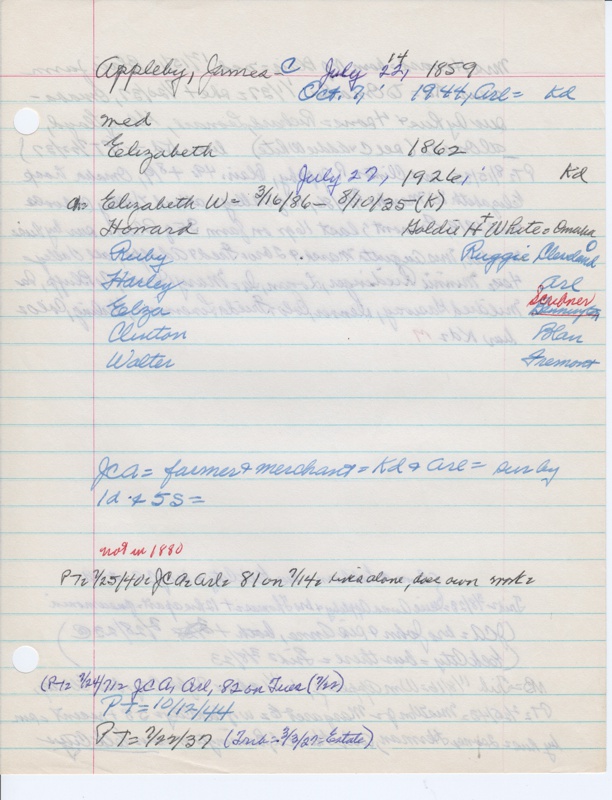 Appleby, James C July 14 22, 1859
Oct. 7, 1944, Arl = Kd
med
Elizabeth 1862
July 27, 1926, Kd
ch = Elizabeth W - 3/16/86 - 8/10/35 - (K)
Howard Goldie H + White = Omaha
Ruby Ruggie Cleveland O
Harley Arl
Elza Scribner Bennington
Clinton Blair
Walter Fremont
JCA = farmer & merchant = Kd & Arl = sur by
1d & 5s =
not in 1880
PT = 7/25/40 = JCA = Arl = 81 on 7/14 = lives alone, does own work =
(PT = 7/24/41 = JCA, Arl, 82 on Tues (7/22)
PT = 10/12/44
PT = 7/22/37 (Trib = 3/3/27 = Estate)